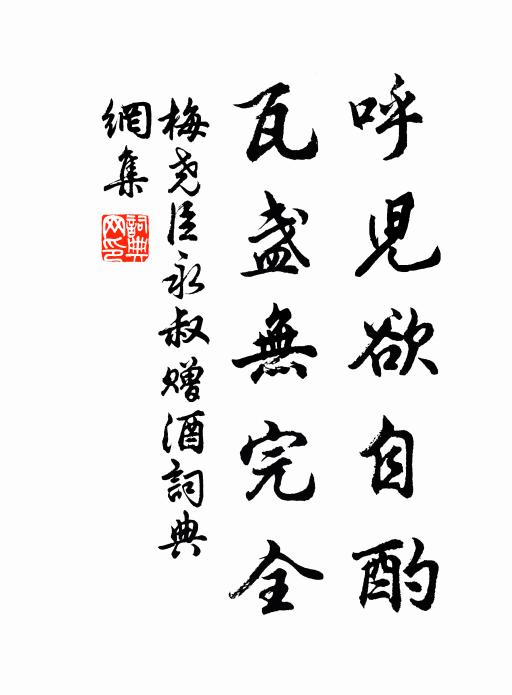 呼児欲自酌
瓦盞無完全
梅堯臣永叔贈酒詞典
網集
詞典網印